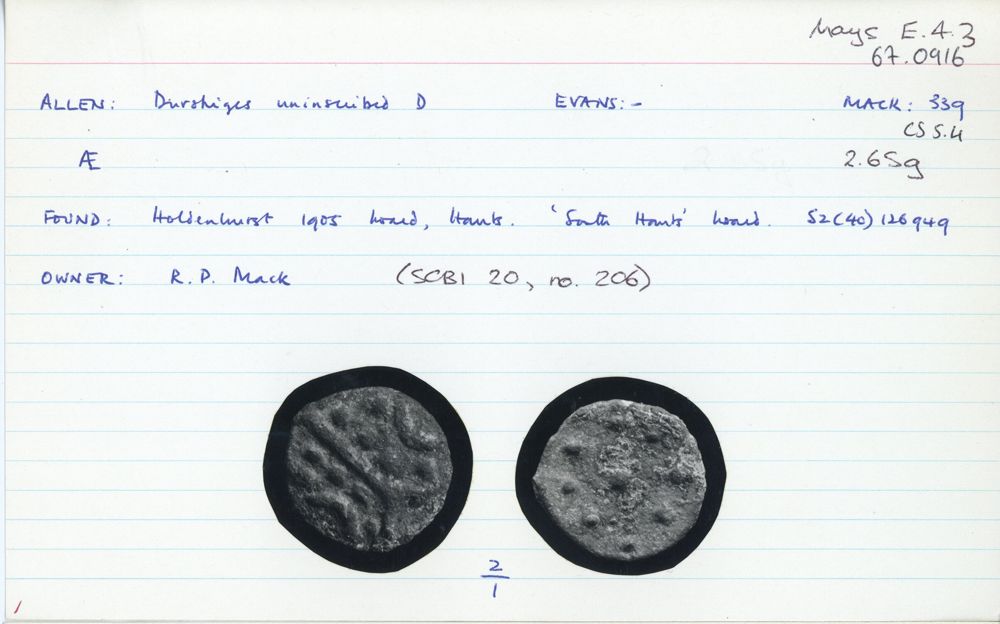 Mays E.4.3
67.0916
ALLEN: Durotriges uninscribed D EVANS: - MACK: 339
CSS.4
Æ 2.65g
FOUND: Holdenhurst 1905 hoard, Hants. 'South Hants' hoard. SZ(40)126949
OWNER: R.P. Mack (SCBI 20, no. 206)
2
1